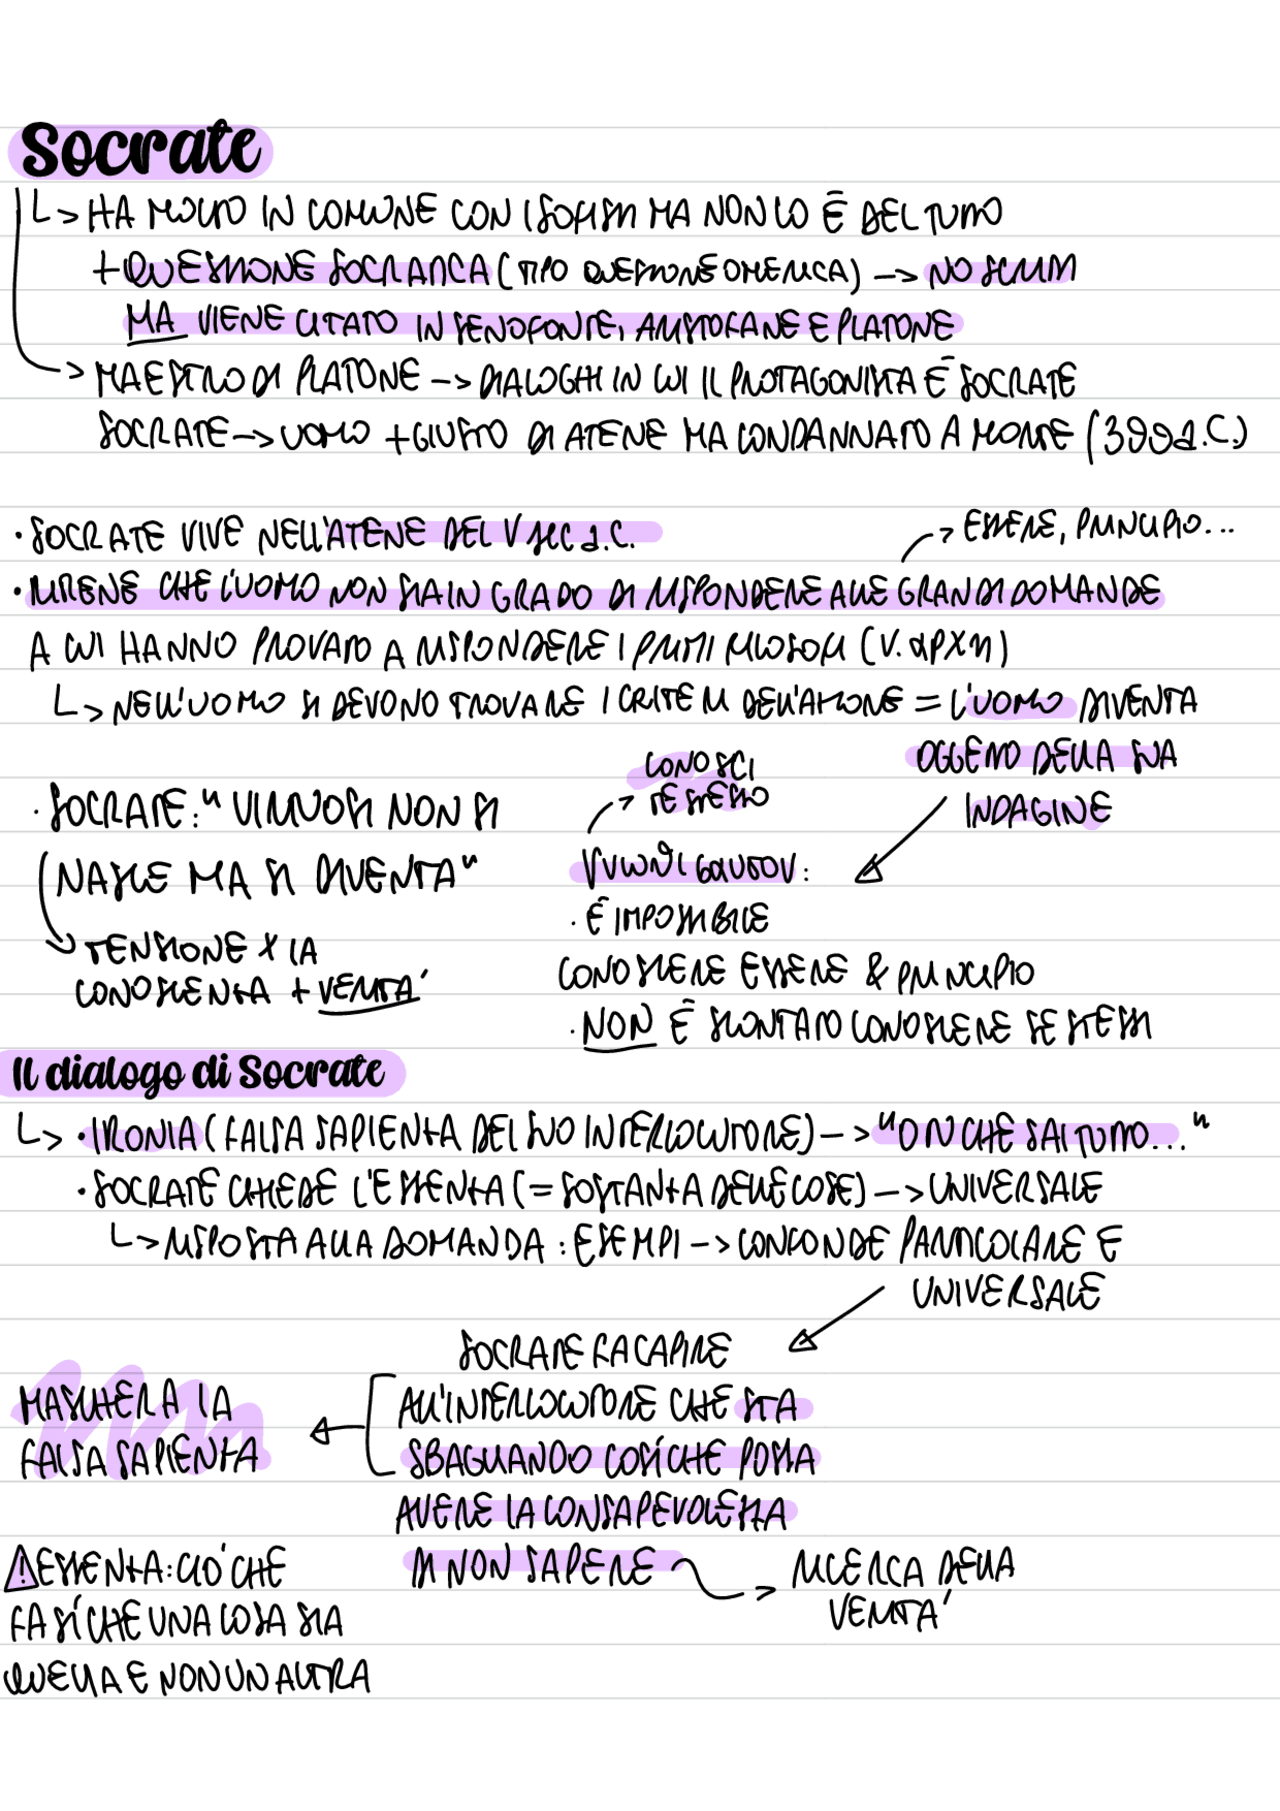 Socrate
↳ HA MOLTO IN COMUNE CON I SOFISTI MA NON LO È DEL TUTTO
+ QUESTIONE SOCRATICA (TIPO QUESTIONE OMERICA) -> NO SCRITTI
MA VIENE CITATO IN SENOFONTE, ARISTOFANE E PLATONE
-> MAESTRO DI PLATONE -> DIALOGHI IN CUI IL PROTAGONISTA È SOCRATE
SOCRATE -> UOMO + GIUSTO DI ATENE MA CONDANNATO A MORTE (399 a.C.)
· SOCRATE VIVE NELL'ATENE DEL V SEC a.C.
-> ESSERE, PRINCIPIO...
· RITIENE CHE L'UOMO NON SIA IN GRADO DI RISPONDERE ALLE GRANDI DOMANDE
A CUI HANNO PROVATO A RISPONDERE I PRIMI FILOSOFI (V. αρχη)
↳ NELL'UOMO SI DEVONO TROVARE I CRITERI DELL'AZIONE = L'UOMO DIVENTA
OGGETTO DELLA SUA
INDAGINE
· SOCRATE: "VIRTUOSI NON SI
NASCE MA SI DIVENTA"
-> TENSIONE X LA
CONOSCENZA + VERITA'
-> CONOSCI
TE STESSO
γνωθι σαυτον:
· È IMPOSSIBILE
CONOSCERE ESSERE & PRINCIPIO
· NON È SCONTATO CONOSCERE SE STESSI
Il dialogo di Socrate
↳ · IRONIA (FALSA SAPIENZA DEL SUO INTERLOCUTORE) -> "O TU CHE SAI TUTTO..."
· SOCRATE CHIEDE L'ESSENZA (= SOSTANZA DELLE COSE) -> UNIVERSALE
↳ RISPOSTA ALLA DOMANDA: ESEMPI -> CONFONDE PARTICOLARE E
UNIVERSALE
SOCRATE FA CAPIRE
ALL'INTERLOCUTORE CHE STA
SBAGLIANDO COSÍ CHE POSSA
AVERE LA CONSAPEVOLEZZA
DI NON SAPERE
-> RICERCA DELLA
VERITA'
MASCHERA LA
FALSA SAPIENZA
⚠ ESSENZA: CIÒ CHE
FA SÍ CHE UNA COSA SIA
QUELLA E NON UN ALTRA